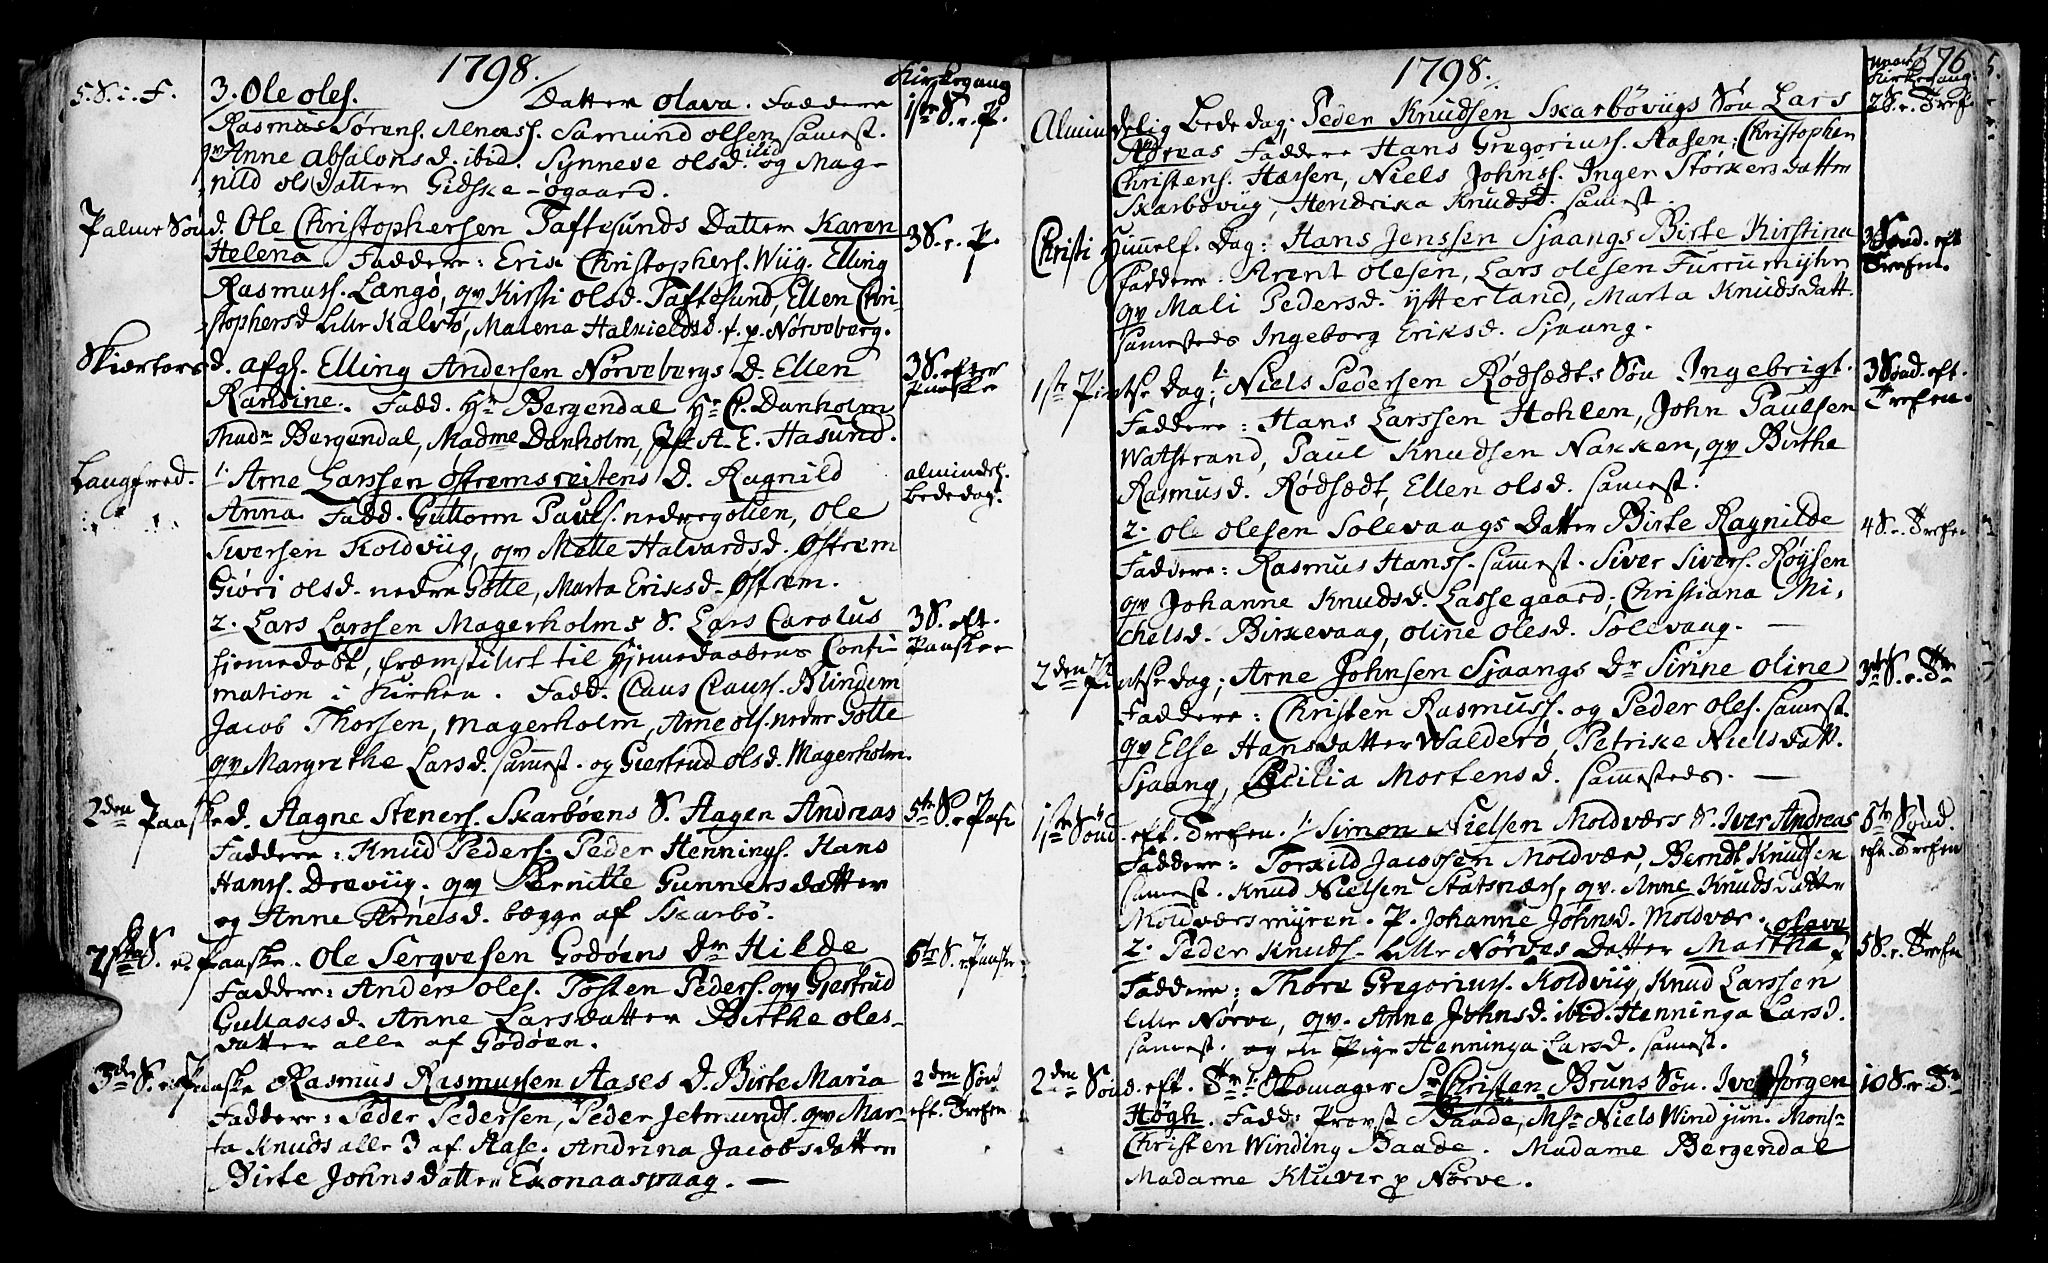 1798.
Kirkegang
5. S. i. F.
3. Ole oles. Datter olava. Faddere
1ste S. e. P.
Rasmus Sørens. Alnæss. Samund olsen samest.
qv Anne absalonsd. ibid. Synneve olsd ibid og Mag-
nild olsdatter Gidske-øgaard.
Palme Sønd. Ole Christophersen Taftesunds Datter Karen
3 S. e. P.
Helena. Faddere: Erik Christophers. Wiig. Elling
Rasmuss. Langø, qv Kirsti olsd. Taftesund, Ellen Chri-
stophersd Lille Kalvø, Malena Halkieldsd. f. p. Nørveberg.
Skiertorsd. afg. Elling Andersen Nørvebergs D. Ellen
3 S. efter Paaske
Randine. Fadd. Hr Bergendal Hr C. Danholm
Mad. Bergendal, Madme Danholm, Jfr A. E. Hasund.
Langfred.
1. Arne Larssen Østremsreitens D. Ragnild
almindel. Bededag.
Anna. Fadd. Guttorm Pauls. nedregotten, Ole
Siversen Koldviig, qv Mette Halvardsd. Østrem
Giøri olsd. nedre Gotte, Marta Eriksd. Østrem.
2. Lars Larssen Magerholms S. Lars Carolus
3 S. eft. Paaske
hjemedøbt, fremstillet til Hjemedaabens Confir
mation i Kirken. Fadd. Claus Clauss. Blindem
Jacob Thorsen, Magerholm, Arne ols. neder Gotte
qv Margrethe Larsd. samest. og Giertrud olsd. Magerholm.
2den Paasked. Aagne Steners. Skarbøens S. Hagen Andreas
5te S. e Paas
Faddere: Knud Peders. Peder Hennings. Hans
Hanss. Drøviig. qv Pernille Gunnersdatter
og Anne Arnesd. begge af Skarbø.
S. e. Paaske. Ole Serqvesen Godøens Dr Hilde
6te S. e Paaske
Faddere: Anders oles. Tosten Peders. qv Giertrud
Gullaksd. Anne Larsdatter Birthe oles-
datter alle af Godøen.
3de S. e. Paaske Rasmus Rasmussen Aases D. Birte Maria
2den Søn eft. Trefen
Faddere: Peder Pedersen, Peder Jetmunds. qv Mar-
ta Knuds alle 3 af Aase. Andrina Jacobsdatter
Birte Johnsdatter Ekonaasvaag. —
1798.
176
Kirkegang
Almindelig Bededag; Peder Knudsen Skarbøviigs Søn Lars
2 S. e. Tref.
Andreas Faddere Hans Gregoriuss. Aasen: Christopher
Christens. Hæssen, Niels Johnss. Inger Størkersdatter
Skarbøviig, Hendrika Knudsd. samest.
Christi Himmelf. Dag: Hans Jenssen Sjaangs Birte Kirstina
3 Sønd. eft Trefen.
Faddere. Arent olesen, Lars olesen Furrumyhr
qv Mali Pedersd. ytterland, Marta Knudsdatt.
samesteds Ingeborg Eriksd. Sjaang.
1ste Pintsedag; 1. Niels Pedersen Rødsædts Søn Ingebrigt.
3 Sønd. eft. Trefen.
Faddere: Hans Larssen Hohlen, John Paulsen
Watstrand, Paul Knudsen Nakken, qv Birthe
Rasmusd. Rødsædt, Ellen olsd. samest.
2. ole olesen Solevaags Datter Birte Ragnilde
4 S. e. Trefen
Faddere: Rasmus Hanss. samest. Siver Sivers. Røysen
qv Johanne Knudsd. Lassegaard, Christiana Mi,
chelsd. Birkevaag, oline olesd. Solevaag. —
2den Pintsedag; Arne Johnsen Sjaangs Dr Sirine oline
3de S. e. Tr
Faddere: Christen Rasmuss. og Peder oles. samest.
qv Else Hansdatter Walderø, Petrike Nielsdatt.
Sjaang, Cecilia Mortensd. samesteds. —
1ste Sønd. eft. Trefen. 1. Simon Nielsen Moldværs S. Iver Andreas
8de Sønd. eft. Trefen
Faddere: Torkild Jacobsen Moldvær, Berndt Knudsen
samest. Knud Nielsen Statsnæss, qv. Anne Knudsdatter
Moldværsmyren. P. Johanne Johnsd. Moldvær. olava
2. Peder Knuds. Lille Nørves Datter Martha
5 S. e. Trefen
Faddere; Thore Gregoriuss. Koldviig, Knud Larssen
Lille Nørve, qv. Anne Johnsd. ibid. Henninga Larsd.
samest. og en Pige Henninga Larsd. samest.
2den Sønd. eft. Tr. Skomager Sr Christen Bruns Søn. Iver Jørgen
10 S. e. Tr
Høgh. Fadd: Provst Baade, Msr Niels Wind jun. Monsr
Christen Winding Baade. Madame Bergendal
Madame Kluver p Nørve.